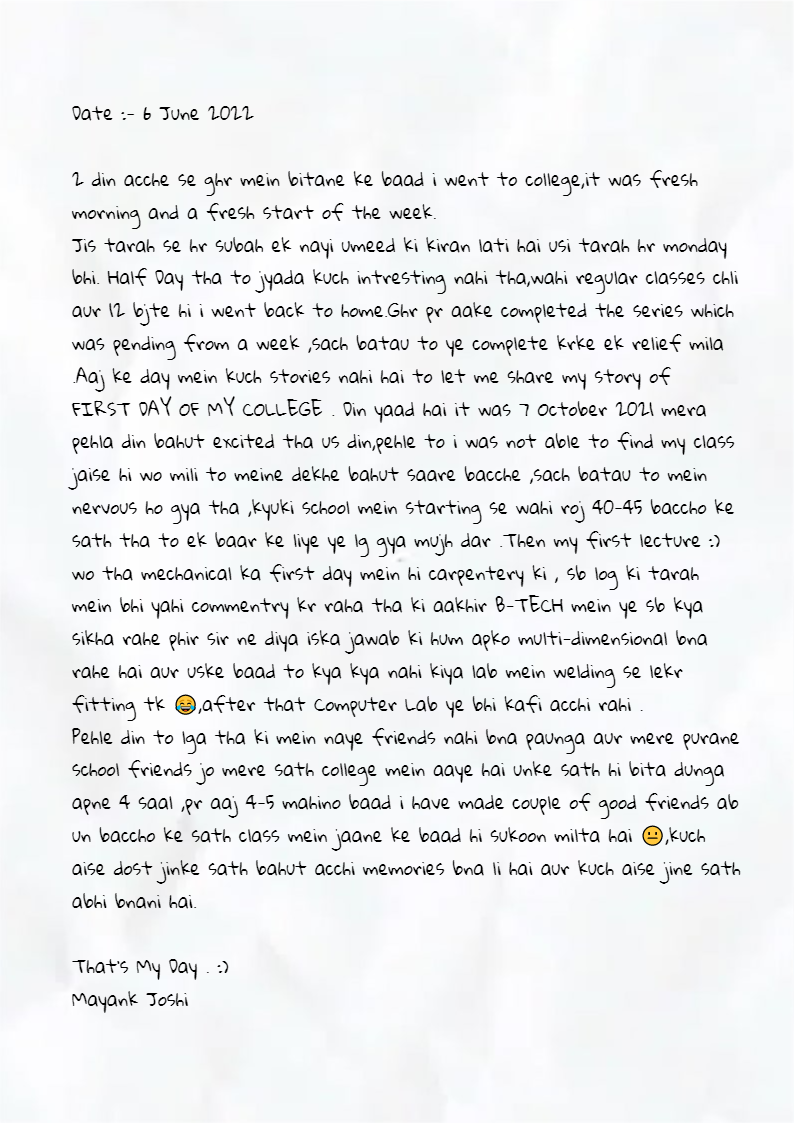 Date :- 6 June 2022
2 din acche se ghr mein bitane ke baad i went to college,it was fresh
morning and a fresh start of the week.
Jis tarah se hr subah ek nayi umeed ki kiran lati hai usi tarah hr monday
bhi. Half Day tha to jyada kuch intresting nahi tha,wahi regular classes chli
aur 12 bjte hi i went back to home.Ghr pr aake completed the series which
was pending from a week ,sach batau to ye complete krke ek relief mila
.Aaj ke day mein kuch stories nahi hai to let me share my story of
FIRST DAY OF MY COLLEGE . Din yaad hai it was 7 October 2021 mera
pehla din bahut excited tha us din,pehle to i was not able to find my class
jaise hi wo mili to meine dekhe bahut saare bacche ,sach batau to mein
nervous ho gya tha ,kyuki school mein starting se wahi roj 40-45 baccho ke
sath tha to ek baar ke liye ye lg gya mujh dar .Then my first lecture :)
wo tha mechanical ka first day mein hi carpentery ki , sb log ki tarah
mein bhi yahi commentry kr raha tha ki aakhir B-TECH mein ye sb kya
sikha rahe phir sir ne diya iska jawab ki hum apko multi-dimensional bna
rahe hai aur uske baad to kya kya nahi kiya lab mein welding se lekr
fitting tk 😂,after that Computer Lab ye bhi kafi acchi rahi .
Pehle din to lga tha ki mein naye friends nahi bna paunga aur mere purane
school friends jo mere sath college mein aaye hai unke sath hi bita dunga
apne 4 saal ,pr aaj 4-5 mahino baad i have made couple of good friends ab
un baccho ke sath class mein jaane ke baad hi sukoon milta hai 😐,kuch
aise dost jinke sath bahut acchi memories bna li hai aur kuch aise jine sath
abhi bnani hai.
That's My Day . :)
Mayank Joshi